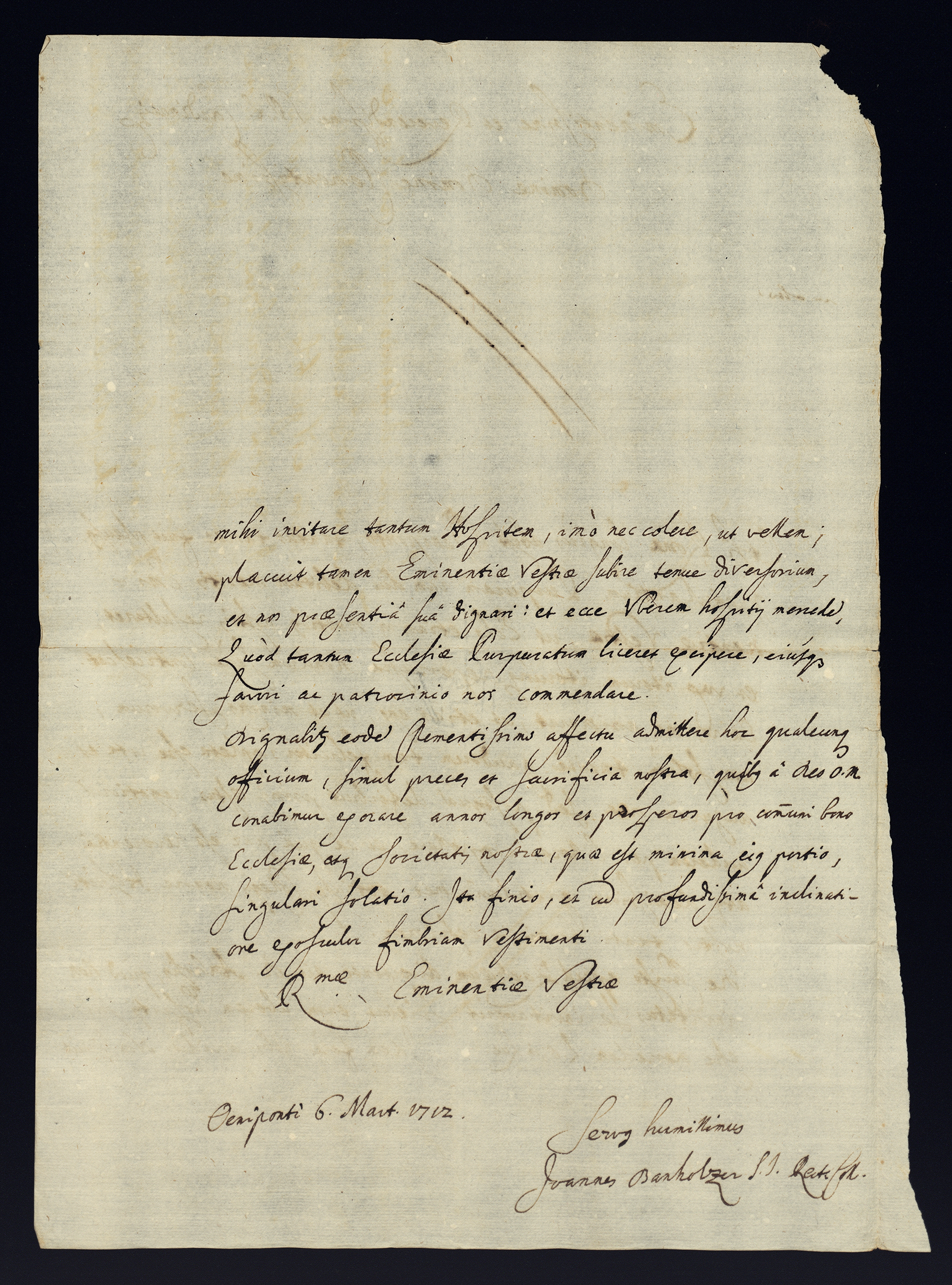 mihi invitare tantum Hospitem, imò nec colere, ut vellem;
placuit tamen Eminentiæ Vestræ subire tenue diversorium,
et nos præsentiâ suâ dignari: et ecce Uberem hospitij mercedē,
Quòd tantum Ecclesiæ Purpuratum liceret excipere, eiusq;
favori ac patrocinio nos commendare.
Dignabitr eodē Clementissimo affectu admittere hoc qualecunq;
officium, simul preces et sacrificia nostra, quibq à Deo O.M.
conabimur exorare annos longos et prosperos pro com̄uni bono
Ecclesiæ, atq; Societatis nostræ, quæ est minima eiq portio,
singulari solatio. Ita finio, et cū profundissimâ inclinati-
one exosculor fimbriam Vestimenti
Rmæ Eminentiæ Vestræ
Oeniponti 6. Mart. 1712.
Servq humillimus
Joannes Banholzer S.J. Rect. Coll.